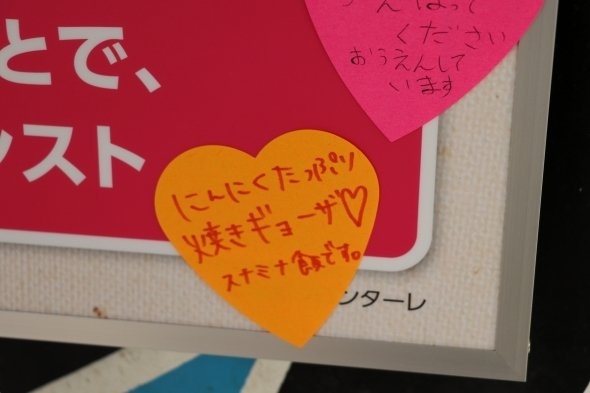 んばって
ください
おうえんして
います
とで、
ンスト
にんにくたっぷり
焼きギョーザ♡
スナミナ飯です。
ンターレ